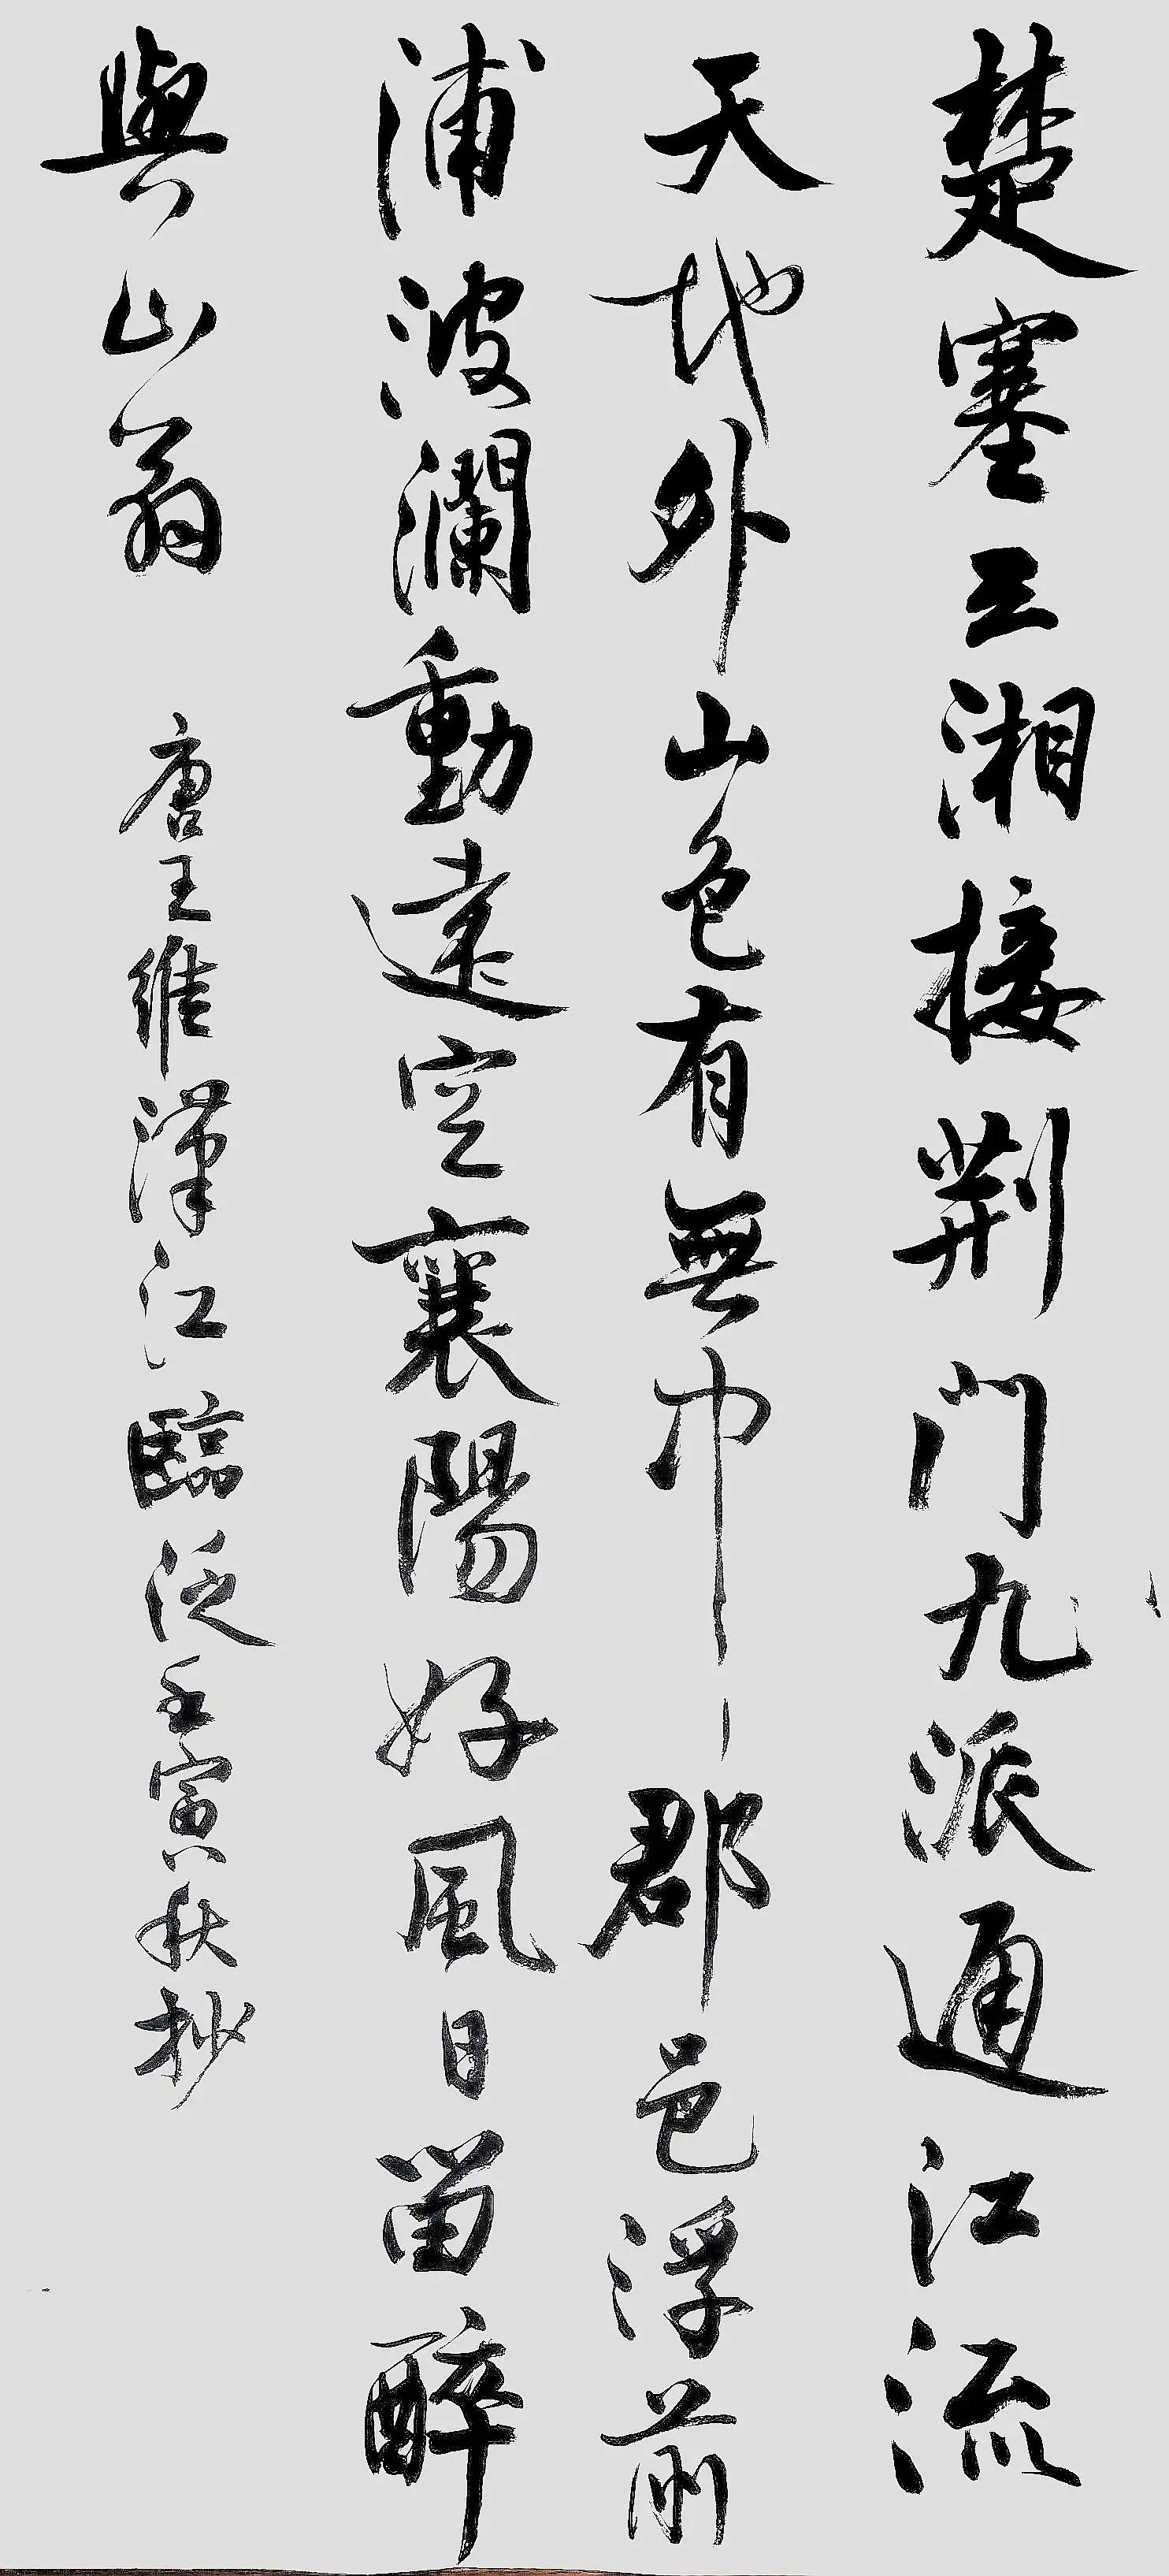 楚塞三湘接荆门九派通江流
天地外山色有無中郡邑浮前
浦波瀾動遠空襄陽好風日留醉
與山翁
唐王維漢江臨泛壬寅秋抄